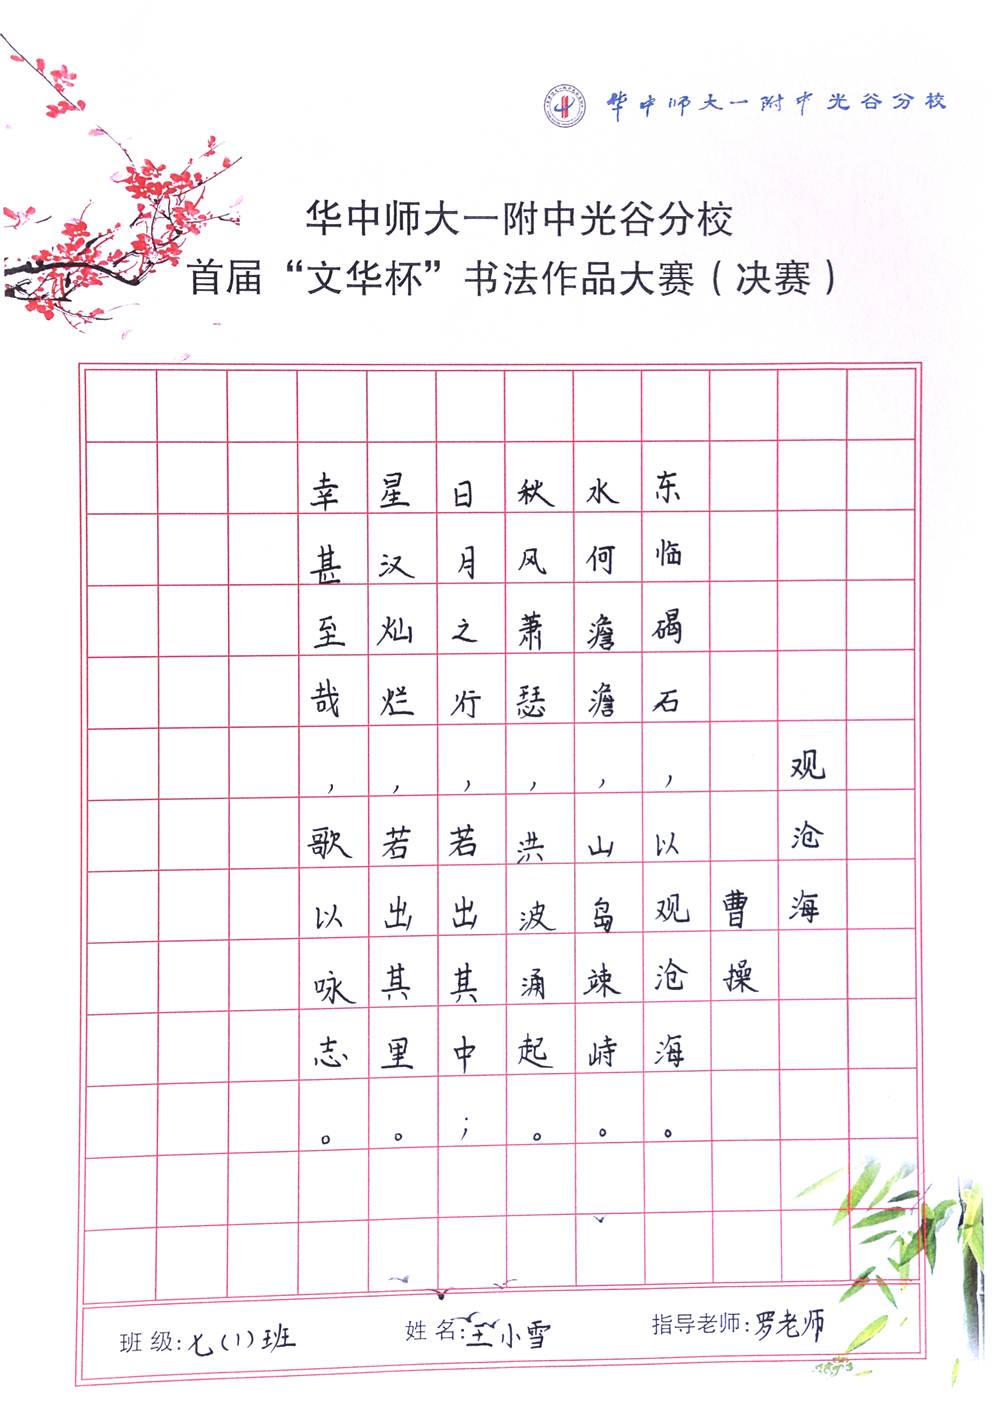 华中师大一附中光谷分校
华中师大一附中光谷分校
首届“文华杯”书法作品大赛（决赛）
观沧海
曹操
东临碣石，以观沧海。
水何澹澹，山岛竦峙。
秋风萧瑟，洪波涌起。
日月之行，若出其中；
星汉灿烂，若出其里。
幸甚至哉，歌以咏志。
班级:七(1)班 姓名:王小雪 指导老师:罗老师